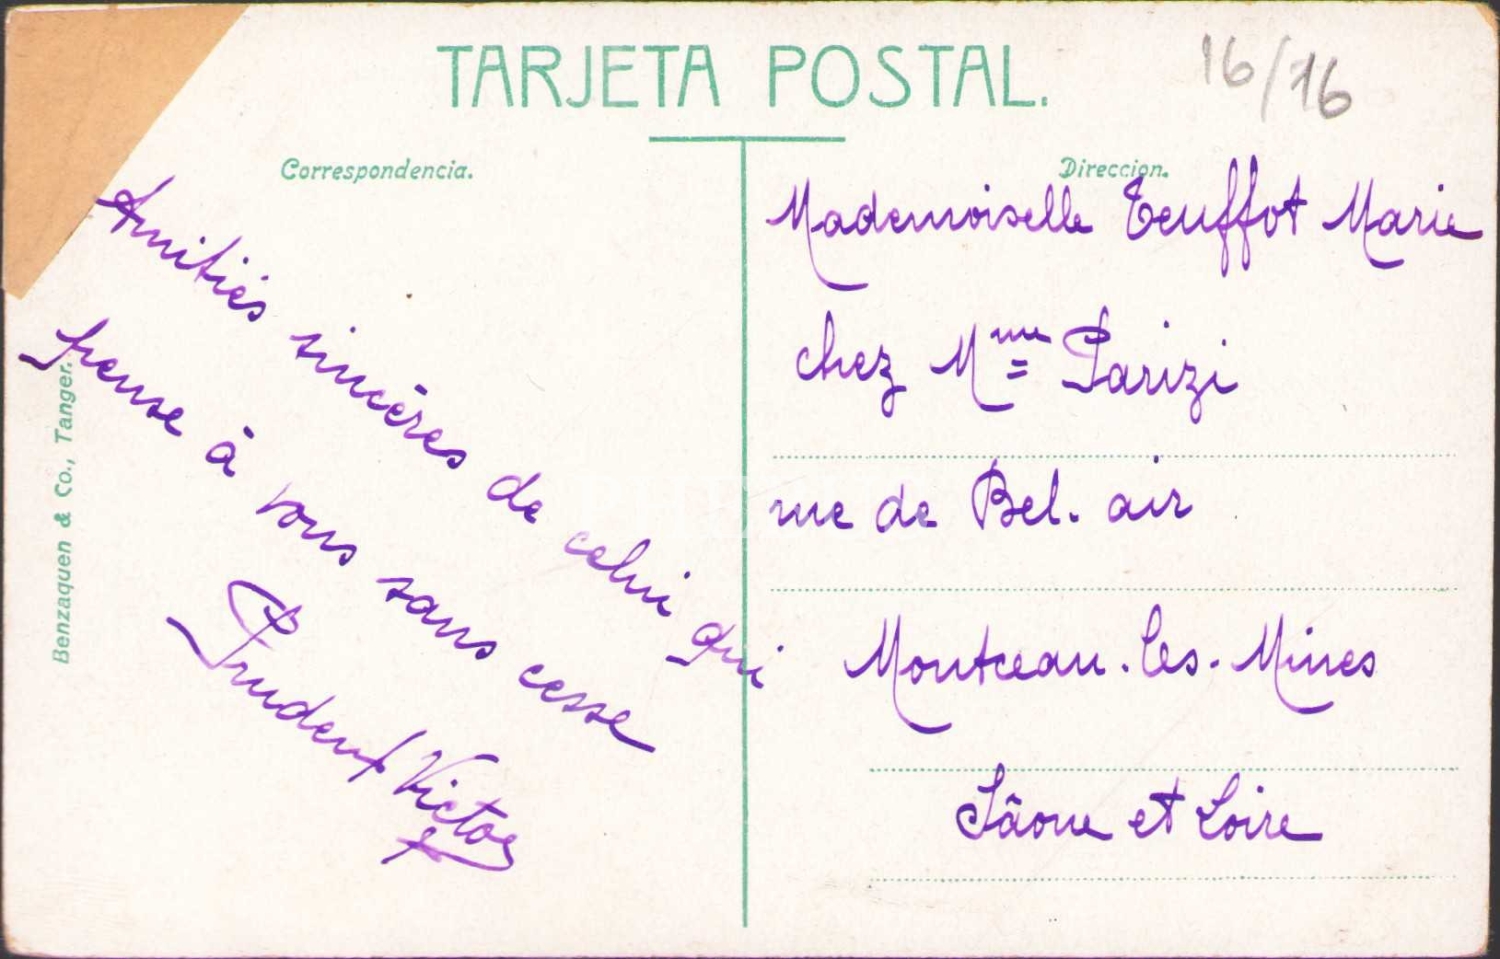 TARJETA POSTAL.
16/16
Correspondencia.
Direccion.
Amitiés sincères de celui qui
pense à vous sans cesse
Prudent Victor
Benzaquen & Co., Tanger.
Mademoiselle Teuffot Marie
chez Mme Parizi
rue de Bel. air
Montceau. les. Mines
Sâone et Loire